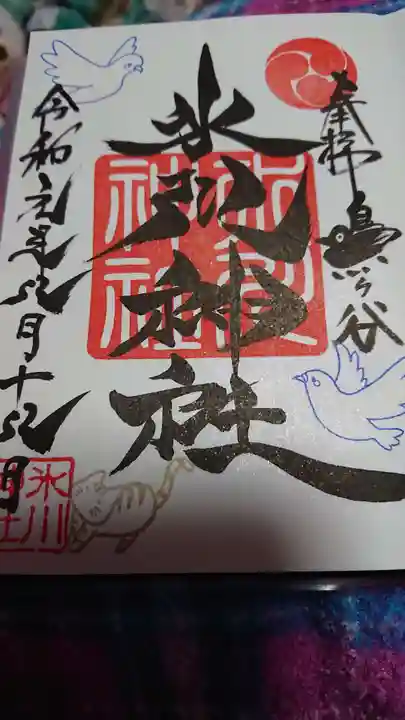 奉拝 鳩ヶ谷
氷川神社
氷川神社
令和元年五月十五日
氷川神社